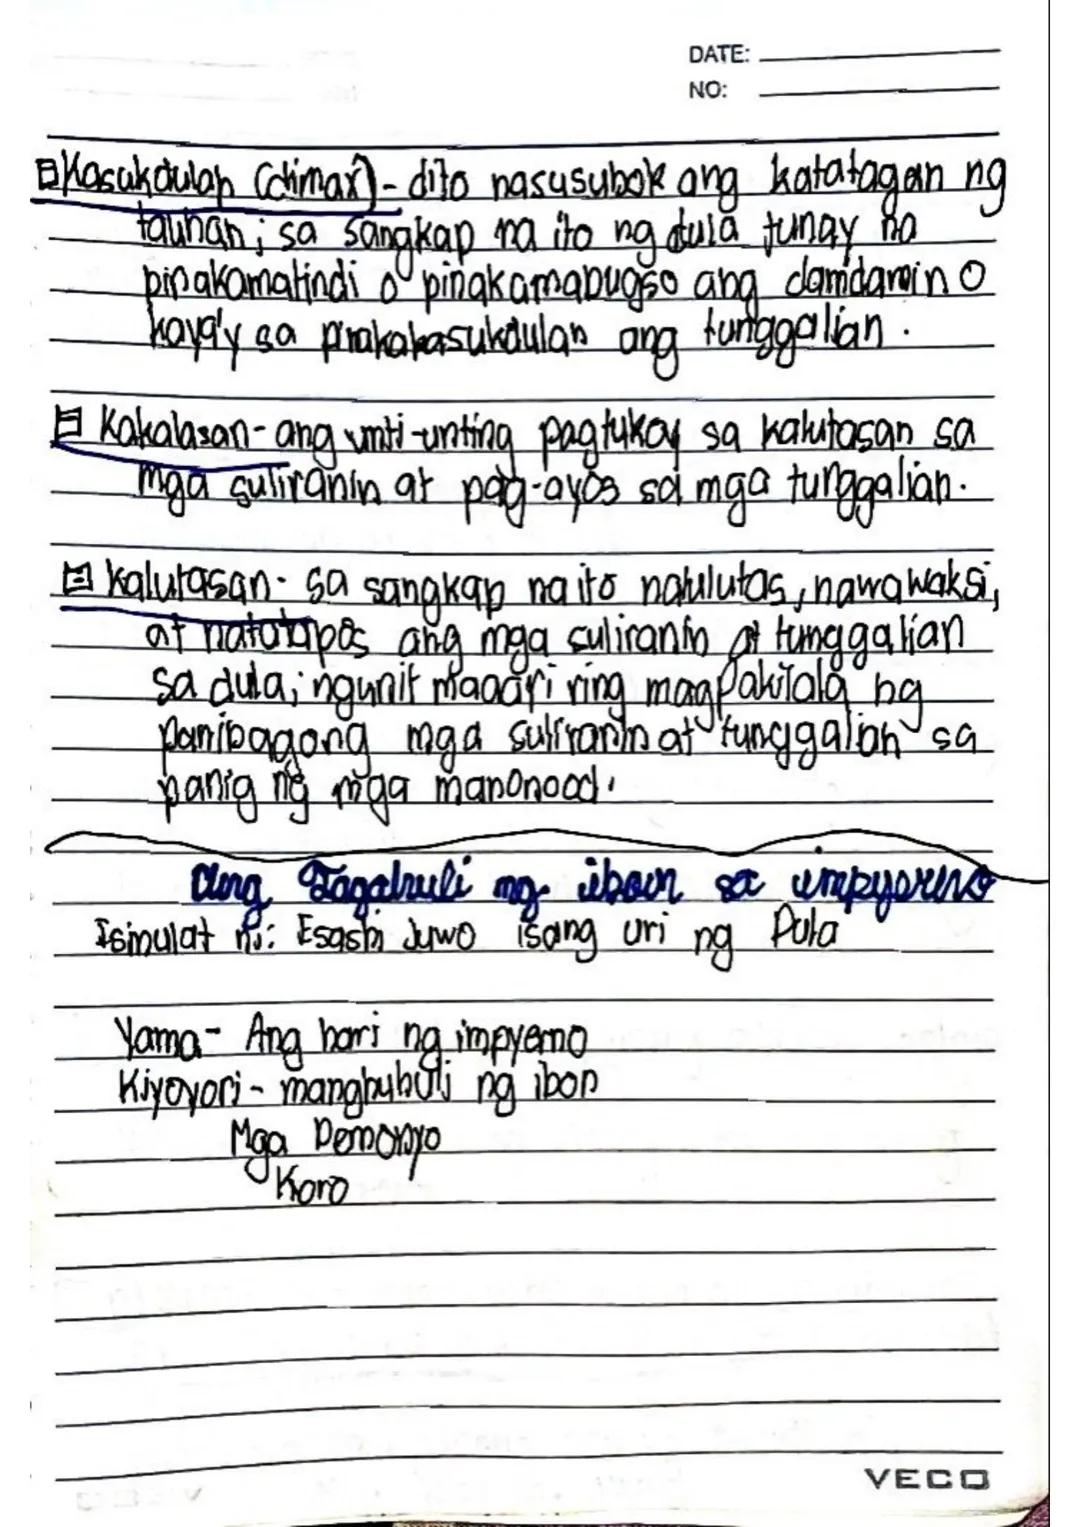 DATE:
NO:
Kasukdulan (Climax) - dito nasusubok ang katatagan ng
tauhan; sa sangkap na ito ng dula tunay na
pinakamatindi o pinakamabugso ang damdamin o
kaya'y sa pinakakasukdulan ang tunggalian.
Kakalasan - ang unti-unting pagtukoy sa kalutasan sa
mga suliranin at pag-ayos sa mga tunggalian.
Kalutasan - sa sangkap na ito nalulutas, nawawaksi,
at natatapos ang mga suliranin at tunggalian
sa dula; ngunit maaari ring magpakilala ng
panibagong mga suliranin at tunggalian sa
panig ng mga manonood.
Ang Tagahuli ng ibon sa impyerno
Isinulat ni: Esashi Juwo isang uri ng Dula
Yama - Ang hari ng impyerno
Kiyoyori - manghuhuli ng ibon
Mga Demonyo
Koro
VECO